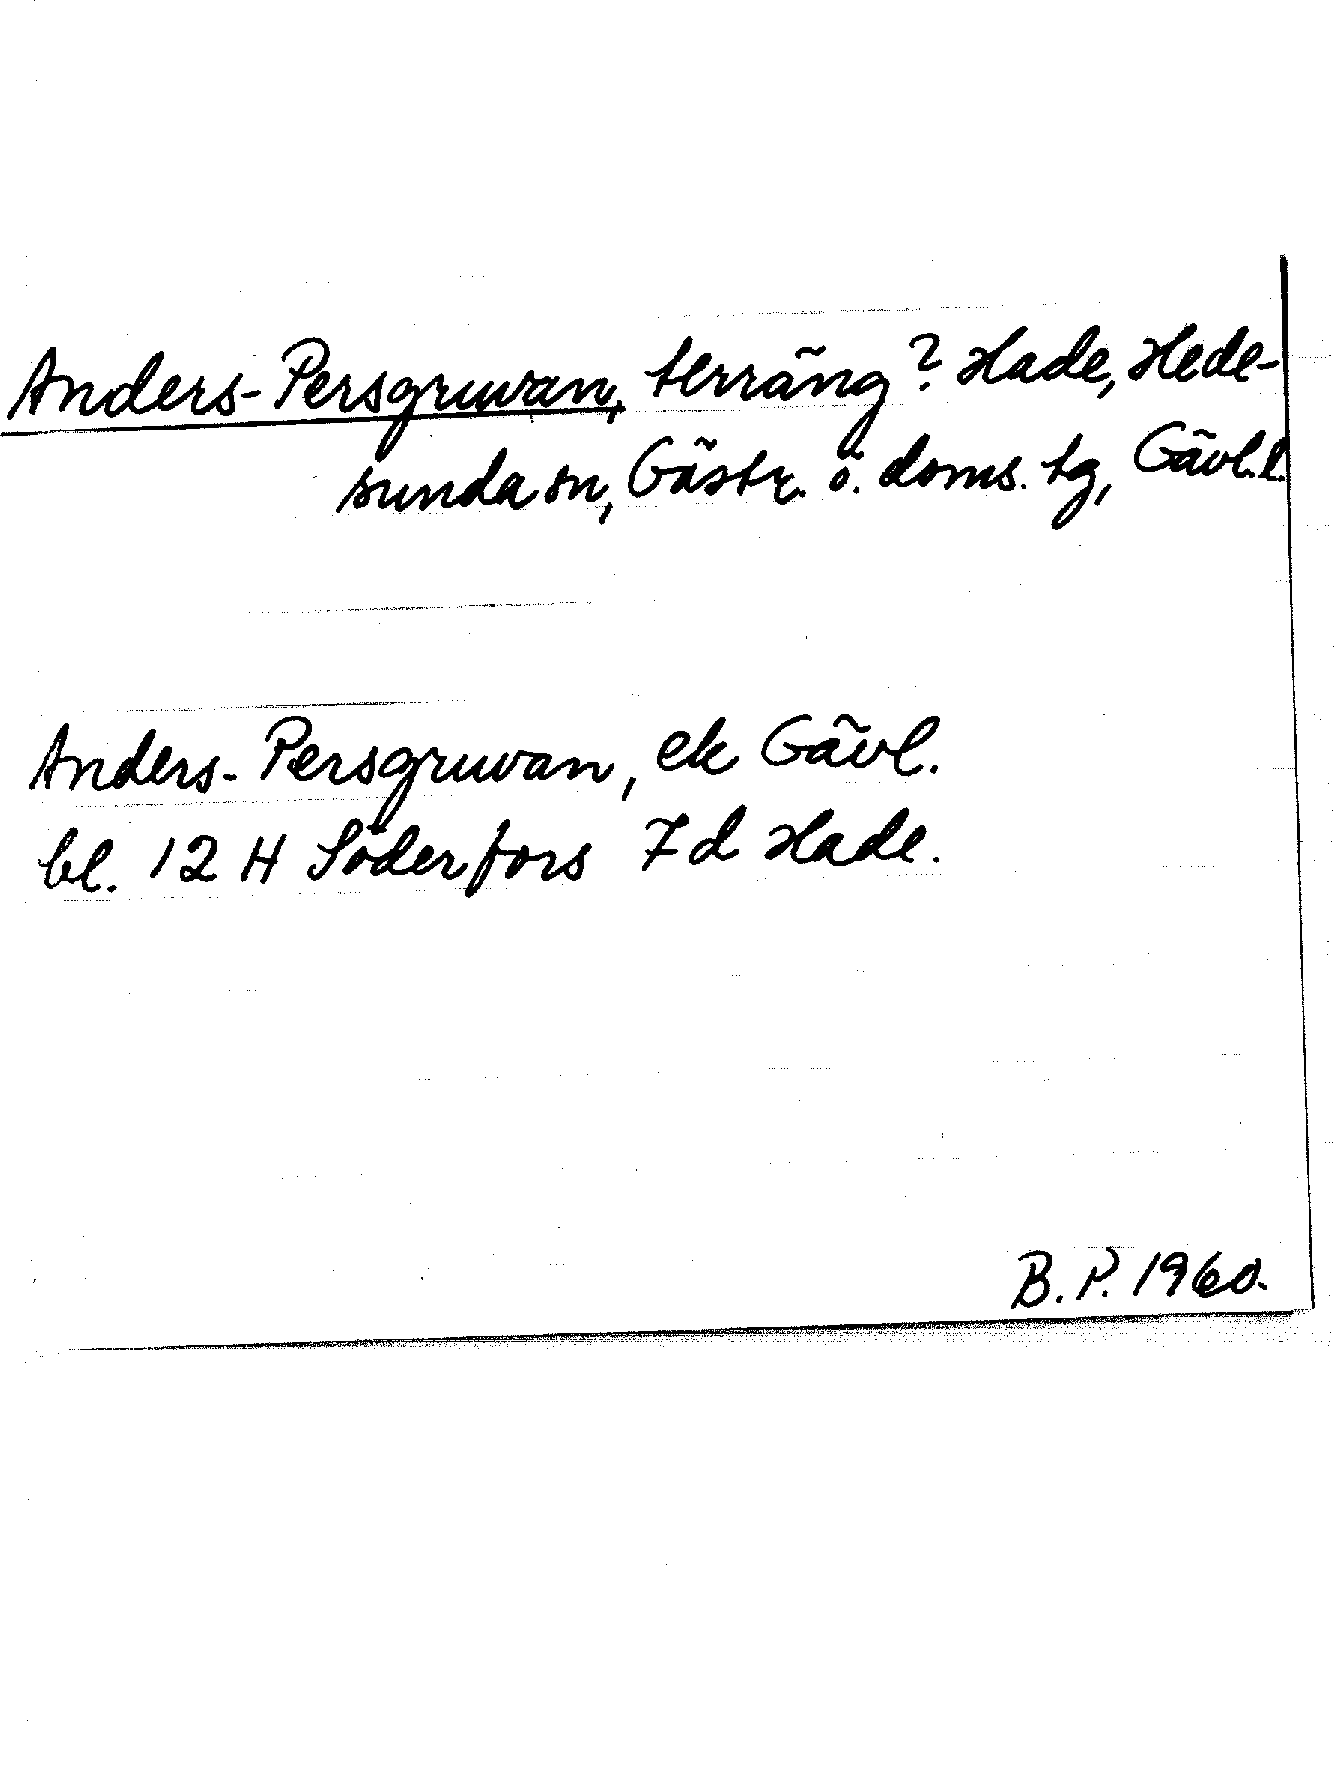 Anders-Persgruvan, terräng? Hade, Hede-
sunda sn, Gästr. ö. doms. tg, Gävl. l.
Anders-Persgruvan, ek Gävl.
bl. 12 H Söderfors 7d Hade.
B.P. 1960.